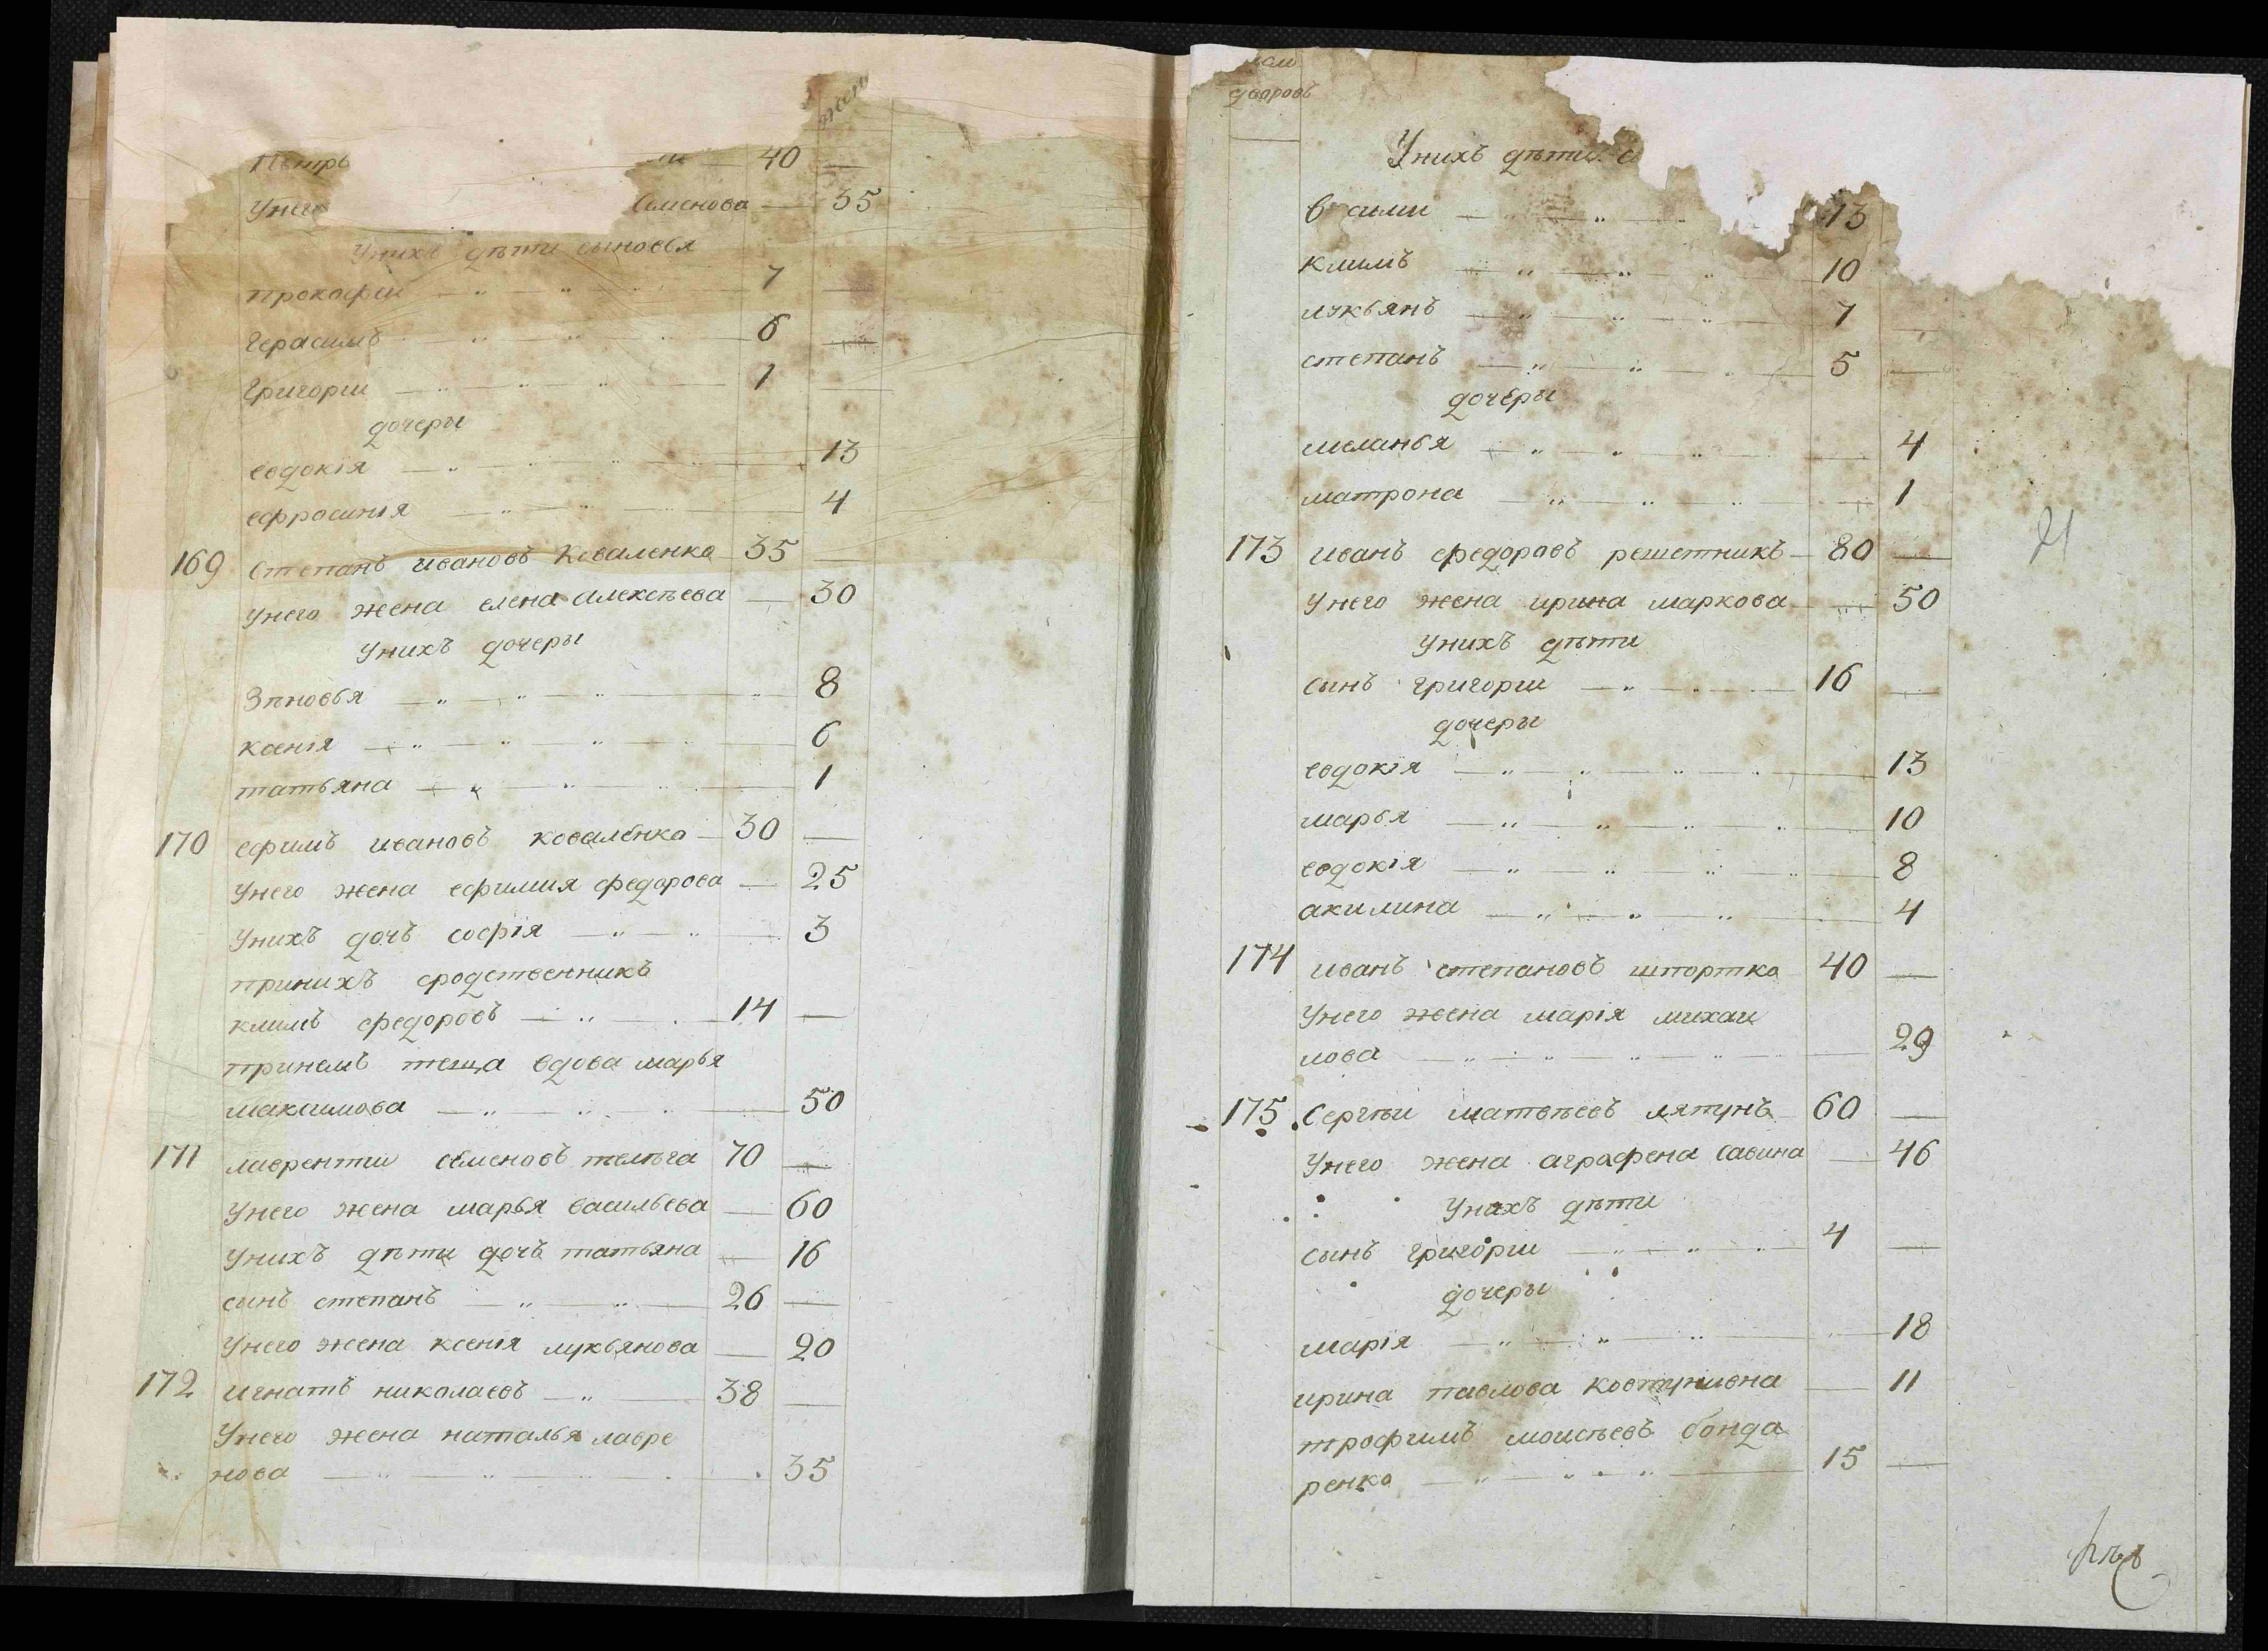 жен
Петръ 40
Унего Семенова 35
Унихъ дѣти сыновья
прокофеи 7
Герасимъ 6
Григории 1
дочеры
евдокія 13
ефросинія 4
169 Степанъ ивановъ Коваленко 35
Унего жена елена алексѣева 30
Унихъ дочеры
Зѣновья 8
ксенія 6
татьяна 1
170 ефимъ ивановъ коваленко 30
Унего жена ефимия федорова 25
Унихъ дочъ софія 3
принихъ сродственникъ
климъ федоровъ 14
принемъ теща вдова марья
максимова 50
171 лаврентии семеновъ телѣга 70
Унего жена марья васильева 60
Унихъ дѣти дочъ татьяна 16
сынъ степанъ 26
Унего жена ксенія лукьянова 20
172 игнатъ николаевъ 38
Унего жена наталья лавре
нова 35
дворовъ
Унихъ дѣти
13
климъ 10
лукьянъ 7
степанъ 5
дочеры
меланья 4
матрона 1
173 иванъ федоровъ решетникъ 80
21
Унего жена ирина маркова 50
Унихъ дѣти
сынъ григории 16
дочеры
евдокія 13
марья 10
евдокія 8
акилина 4
174 иванъ степановъ шпортко 40
Унего жена марія михаи
лова 29
175 Сергѣи матвѣевъ лятунъ 60
Унего жена аграфена савина 46
Унихъ дѣти
сынъ григории 4
дочеры
марія 18
ирина павлова ковтунивна 11
трофимъ моисѣевъ бонда
ренко 15